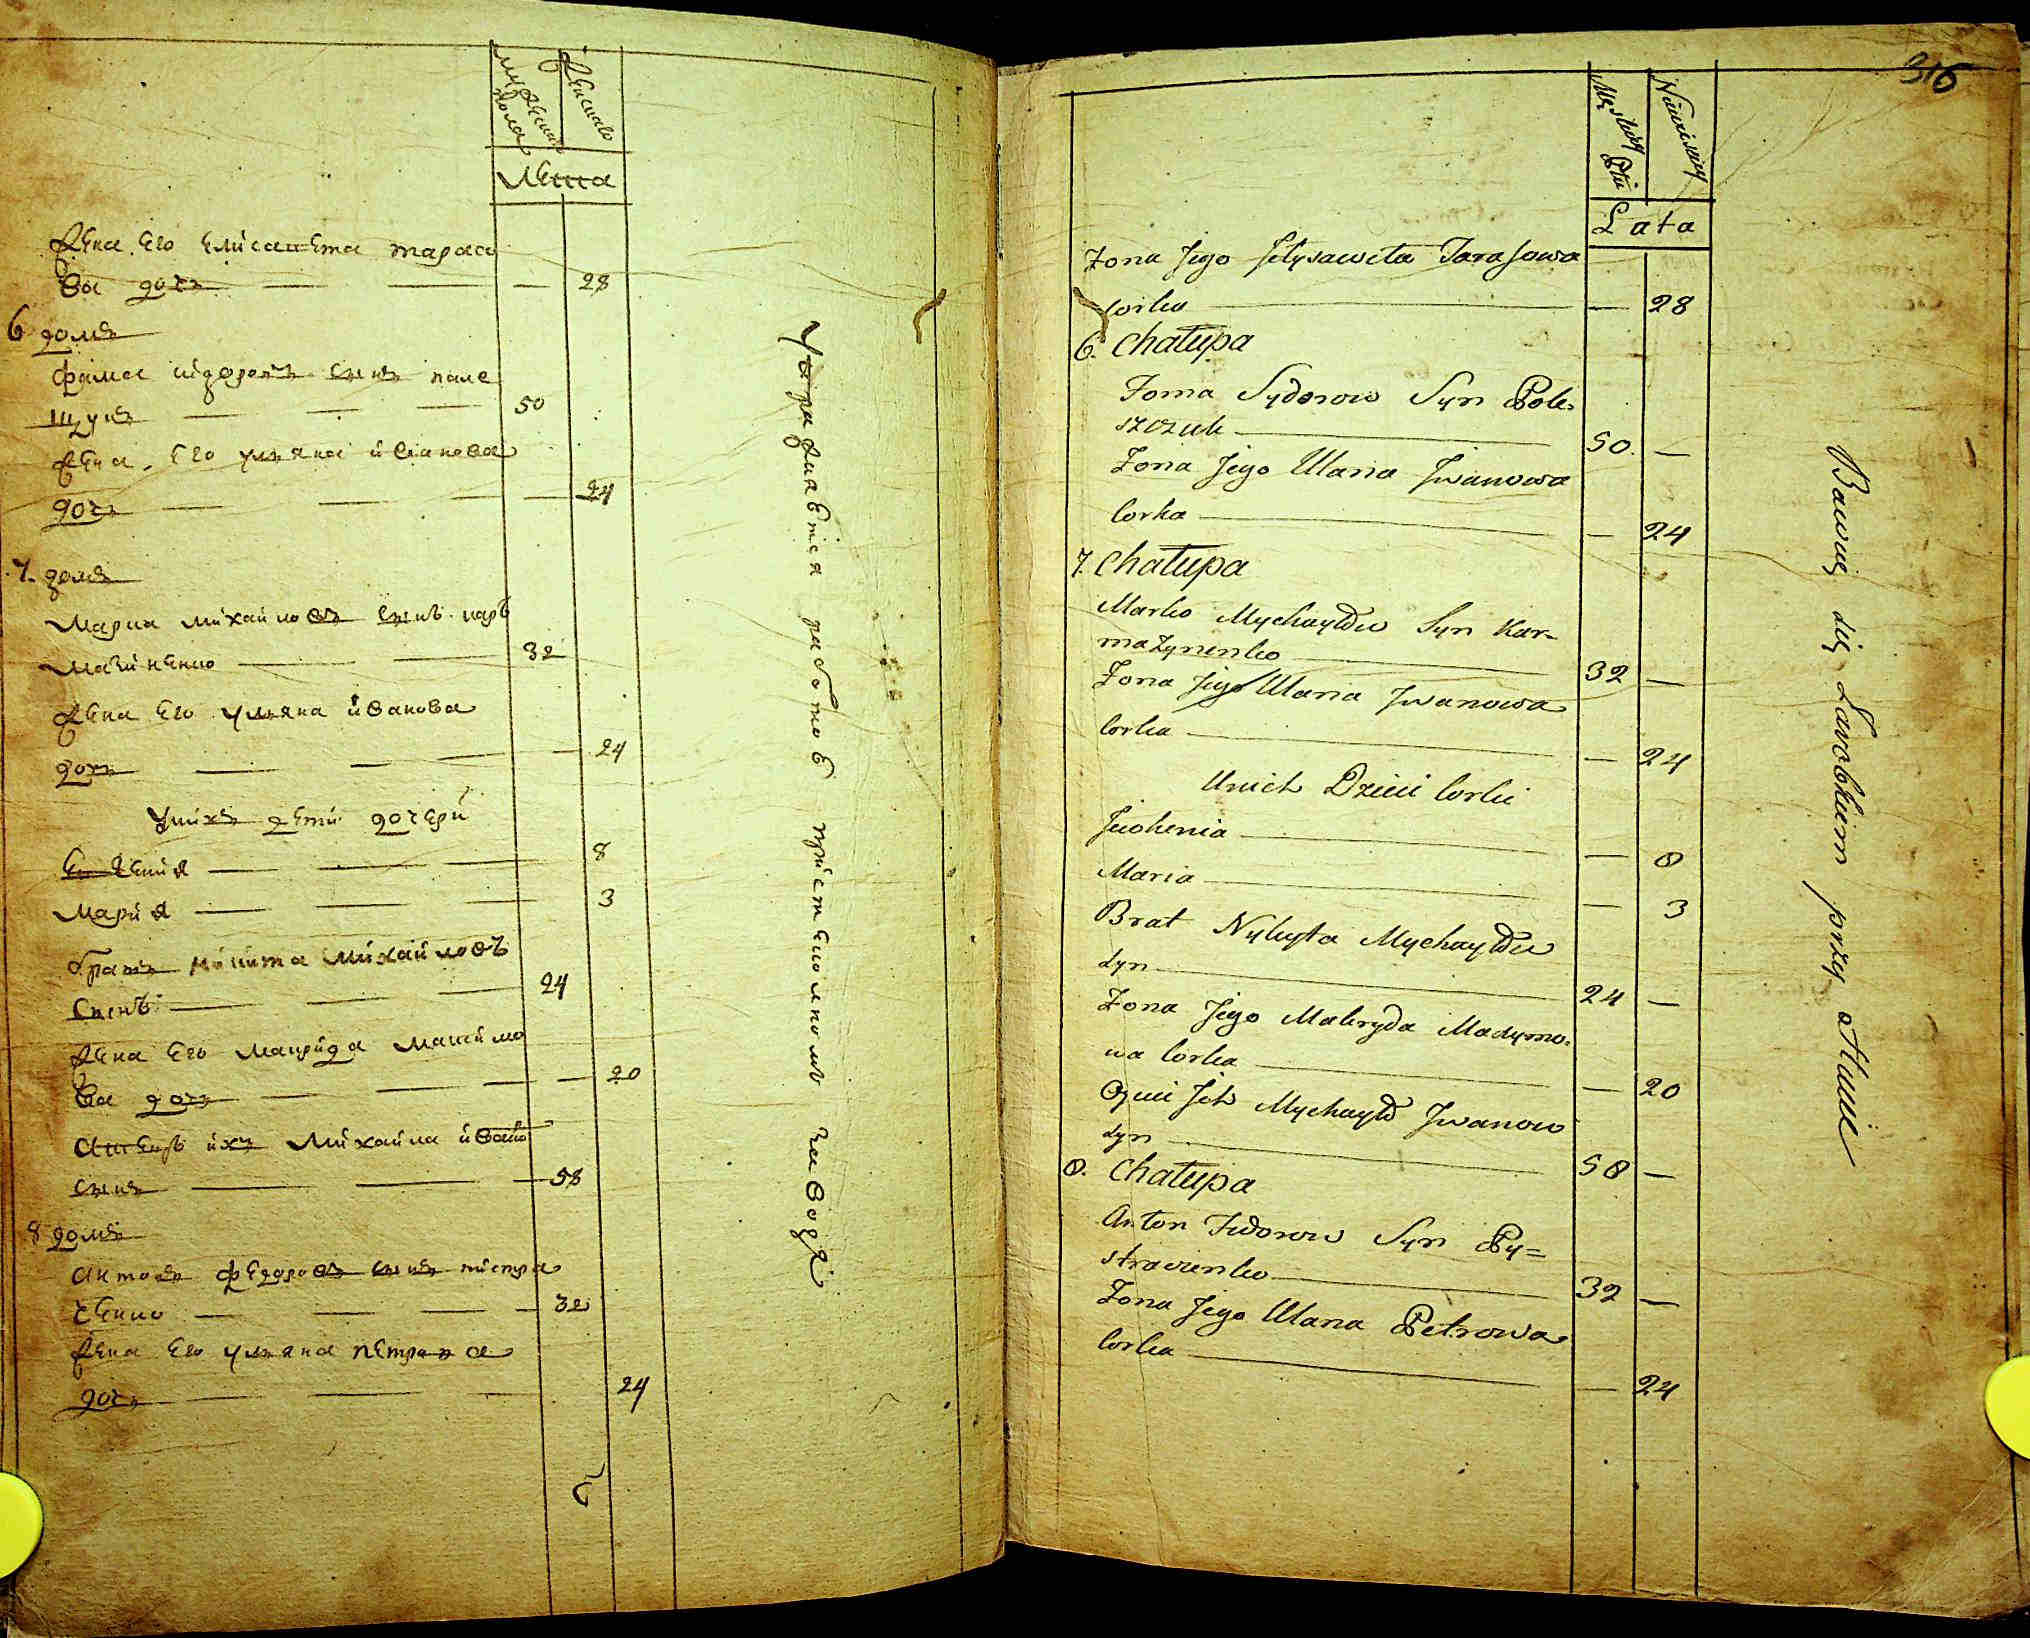 мужеска пола
женска
лета
жена его елисавета тарасо
ва дочь — 28
6 домъ
фома сидоровъ сынъ поле
щукъ — 50
жена его ульяна иванова
дочь — 24
7. домъ
марка михайловъ сынъ кар
мазиненко — 32
жена его ульяна иванова
дочь — 24
у нихъ дети дочери
евгения — 8
мария — 3
братъ никита михайловъ
сынъ — 24
жена его макрида максимо
ва дочь — 20
отецъ ихъ михайла ивановъ
сынъ — 58
8 домъ
антонъ федоровъ сынъ пистра
ченко — 32
жена его ульяна петрова
дочь — 24
упражнавтся работою при стекольномъ заводе
316
Męskiey Płci
Niewiesciey
Lata
Zona Jego Jelysaweta Tarasowa
Corka — 28
6. Chałupa
Foma Sydorow Syn Pole-
szczuk — 50. —
Zona Jego Ulana Jwanowa
Corka — 24
7. Chałupa
Marko Mychayłow Syn Kar-
mazynenko — 32 —
Zona Jego Ulana Jwanowa
Corka — 24
U nich Dzieci Corki
Jewhenia — 8
Maria — 3
Brat Nykyta Mychayłow
Syn — 24 —
Zona Jego Makryda Maxymo-
wa Corka — 20
Oyciec Jch Mychayło Jwanow
Syn — 58 —
8. Chałupa
Anton Fedorow Syn Py=
straczenko — 32 —
Zona Jego Ulana Petrowa
Corka — 24
Bawią się Zarobkiem przy Hucie